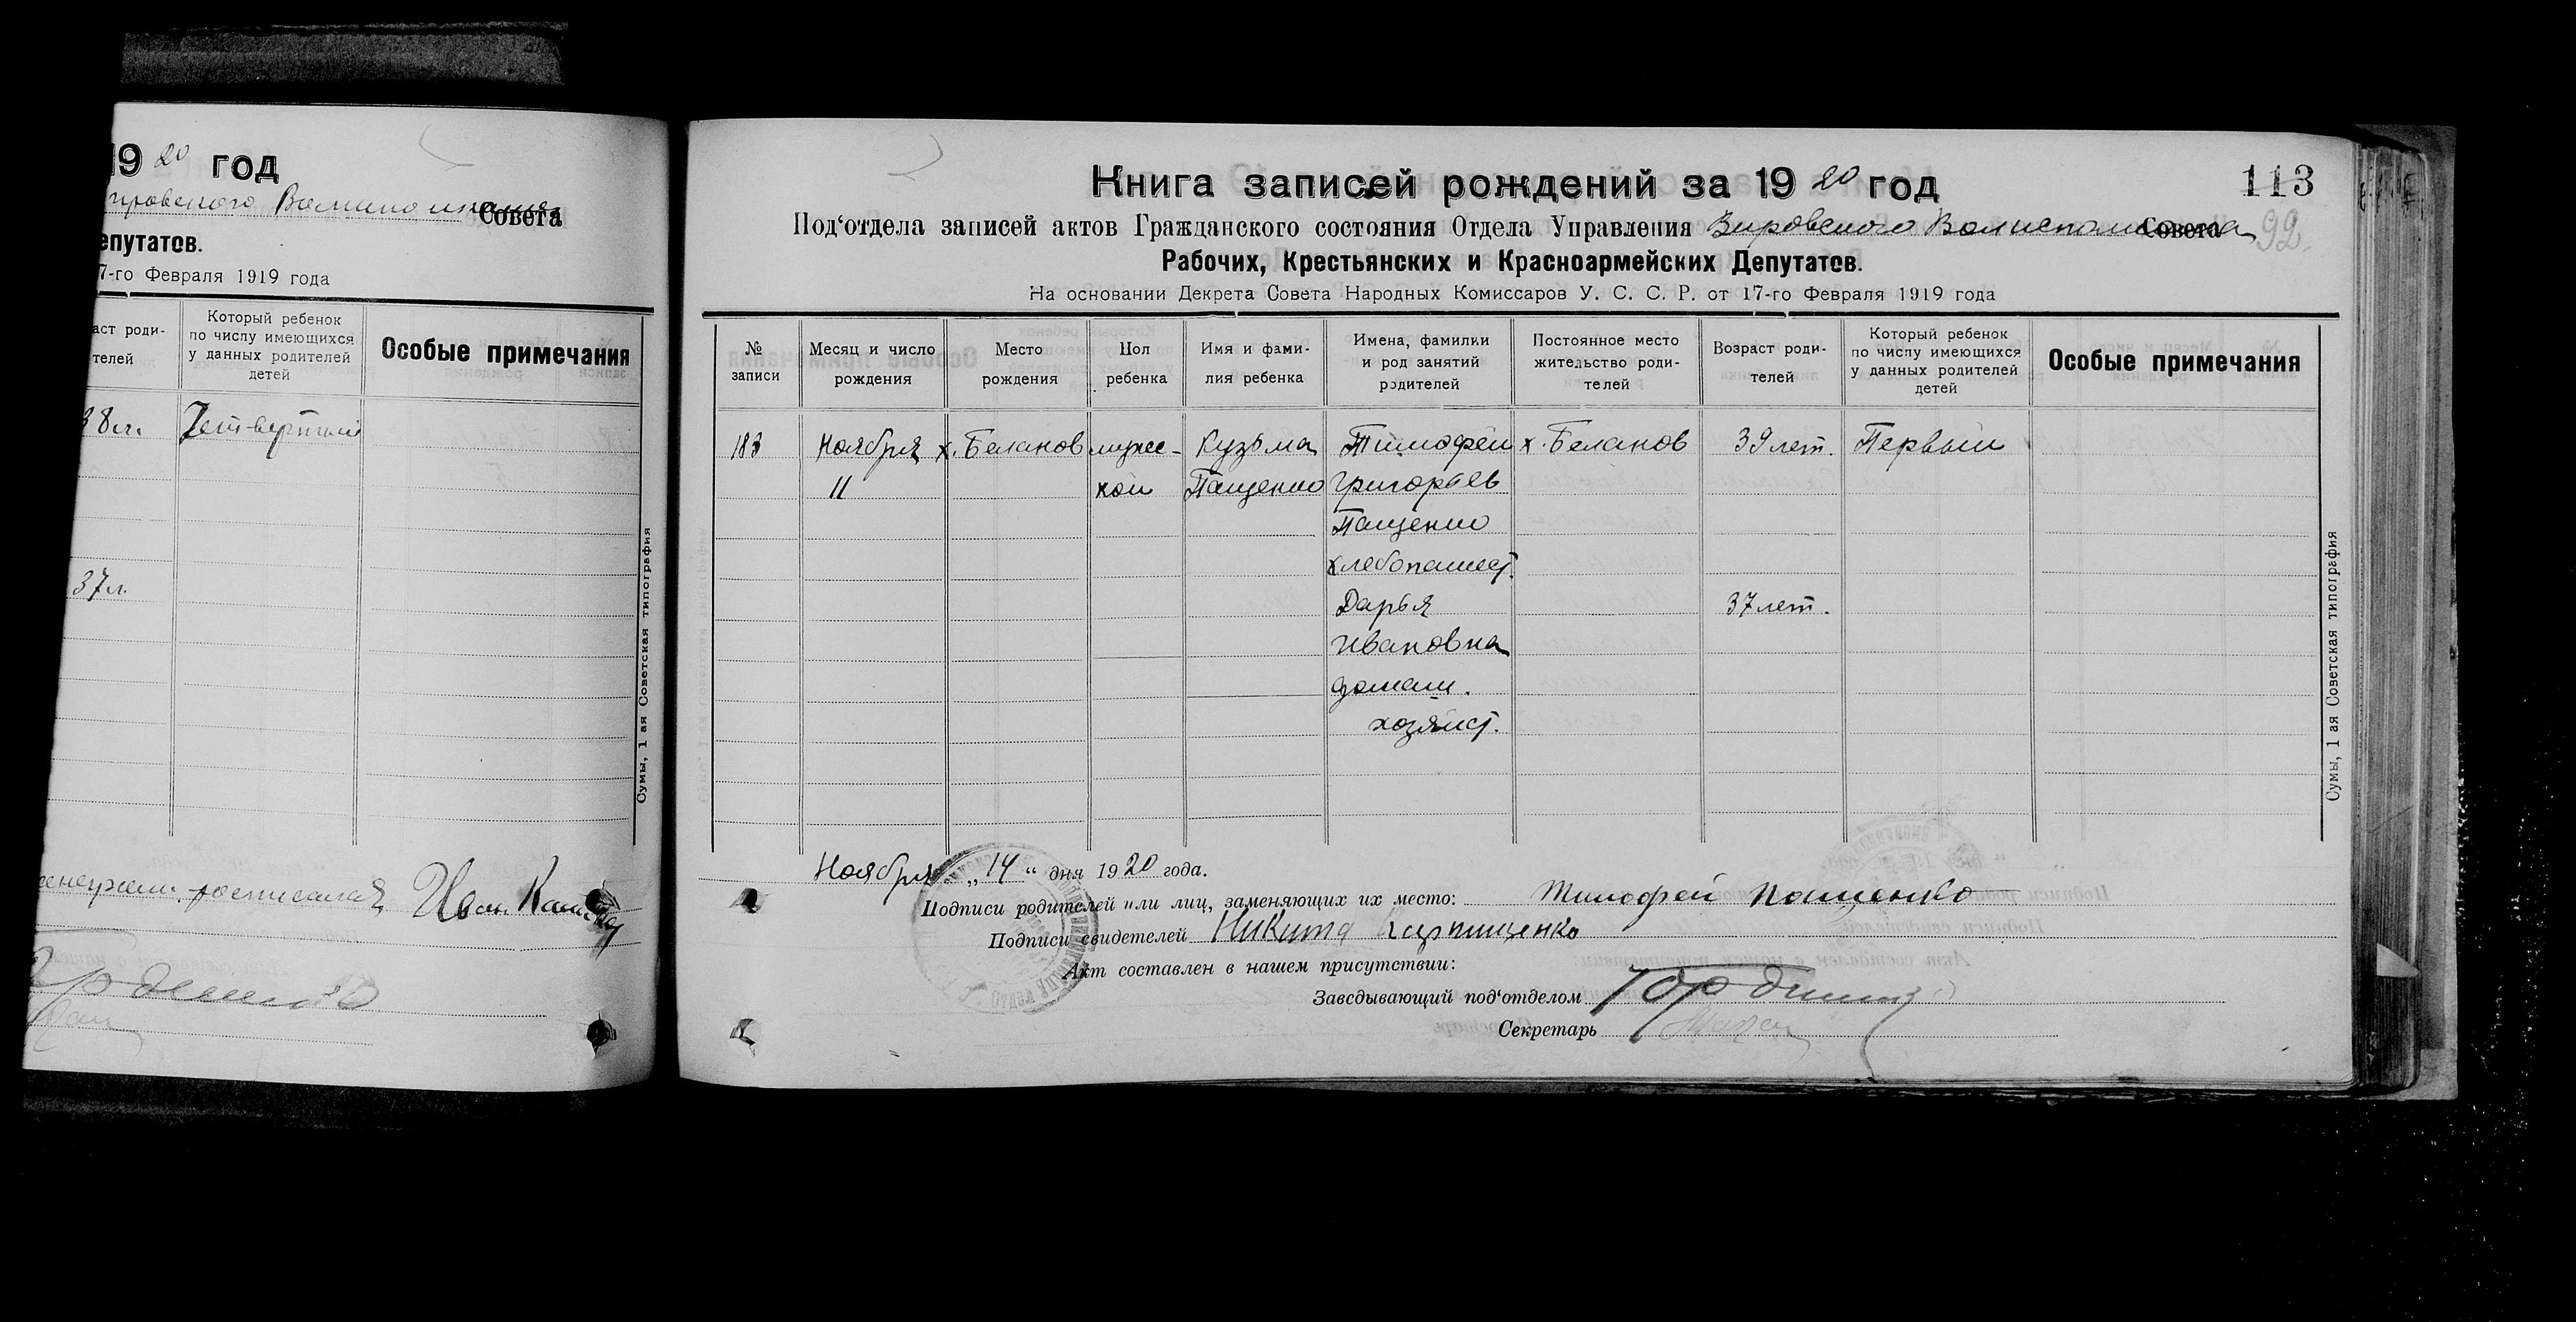 19 20 год
Совета
епутатов.
7-го Февраля 1919 года
аст роди-
телей
Который ребенок
по числу имеющихся
у данных родителей
детей
Особые примечания
38 л.
Четвертый
37 л.
Сумы, 1 ая Советская типография
росписался Иван
113
92.
Книга записей рождений за 19 20 год
Под‘отдела записей актов Гражданского состояния Отдела Управления Вировского Волисполкома Совета
Рабочих, Крестьянских и Красноармейских Депутатов.
На основании Декрета Совета Народных Комиссаров У. С. С. Р. от 17-го Февраля 1919 года
№
записи
Месяц и число
рождения
Место
рождения
Пол
ребенка
Имя и фами-
лия ребенка
Имена, фамилии
и род занятий
родителей
Постоянное место
жительство роди-
телей
Возраст роди-
телей
Который ребенок
по числу имеющихся
у данных родителей
детей
Особые примечания
183 Ноября х. Беланов мужс- Кузьма Тимофей х. Беланов 39 лет. Первый
11 кой Пащенко Григорьев
Пащенко
хлебопашест.
Дарья 37 лет.
Ивановна
домаш.
хозяйст.
Сумы, 1 ая Советская типография
Ноября „14“ дня 1920 года.
Подписи родителей или лиц, заменяющих их место: Тимофей Пащенко
Подписи свидетелей Никита Кирпиценко
Акт составлен в нашем присутствии:
Заведывающий под‘отделом
Секретарь